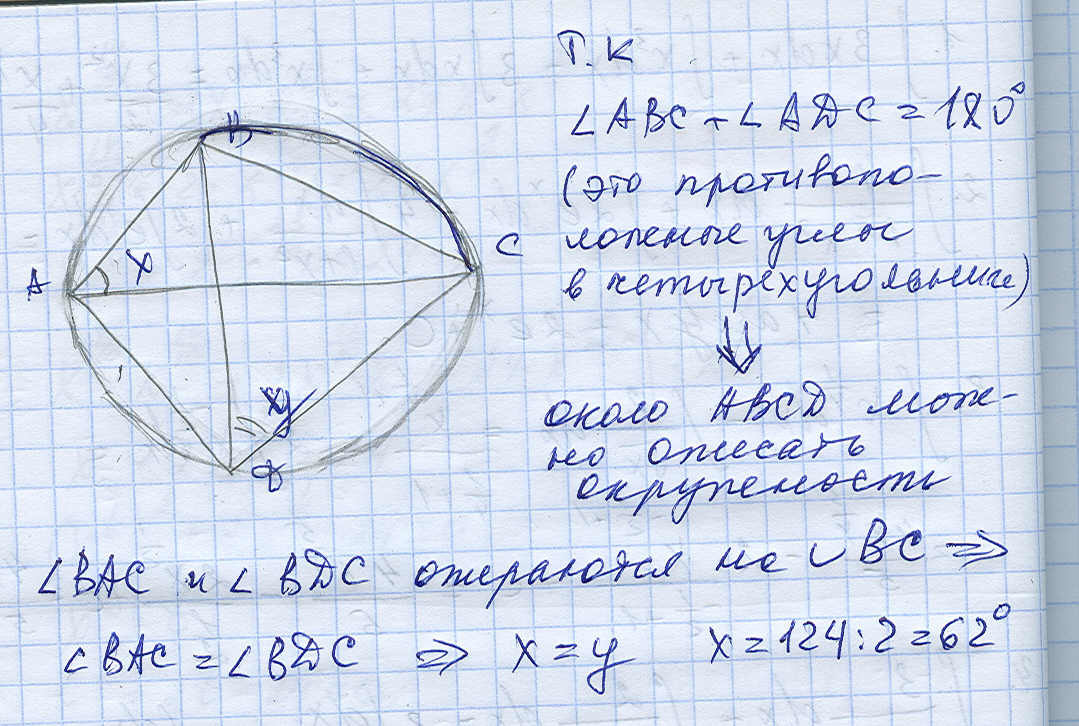 Т.К
∠ABC + ∠ADC = 180°
(это противопо-
ложные углы
в четырехугольнике)
⇓
около ABCD мож-
но описать
окружность
B
A
X
C
y
D
∠BAC и ∠BDC опираются на ∪BC ⇒
∠BAC = ∠BDC ⇒ x = y x = 124:2 = 62°